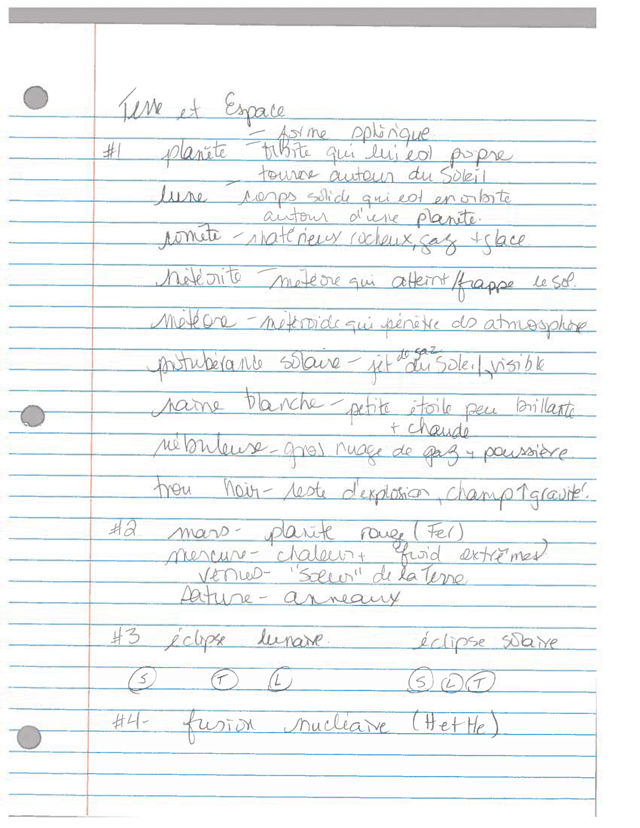 Terre et Espace
- forme sphérique
#1 planète - orbite qui lui est propre
tourne autour du Soleil
lune - corps solide qui est en orbite
autour d'une planète.
comète - matérieux rocheux, gaz + glace
météorite - météore qui atteint/frappe le sol.
météore - météroide qui pénètre ds atmosphère
protubérance solaire - jet de gaz du Soleil, visible
naine blanche - petite étoile peu brillante
+ chaude
nébuleuse - gros nuage de gaz + poussière
trou noir - reste d'explosion, champ ↑ gravité.
#2 mars - planète rouge (Fer)
mercure - chaleur + froid extrêmes
vénus - "soeur" de la Terre
Saturne - anneaux
#3 éclipse lunaire. éclipse solaire
S T L S L T
#4- fusion nucléaire (H et He)